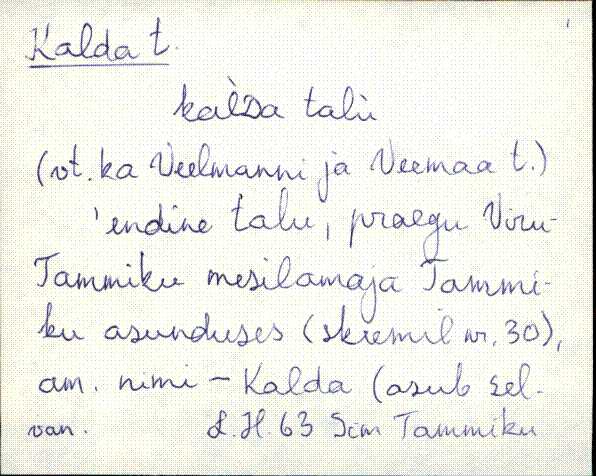 Kalda t.
kalDa talù
(vt. ka Veelmanni ja Veemaa t.)
'endine talu, praegu Viru-
Tammiku mesilamaja Tammi-
ku asunduses (skeemil nr. 30),
am. nimi – Kalda (asub sel-
van. L.H. 63 Sim Tammiku